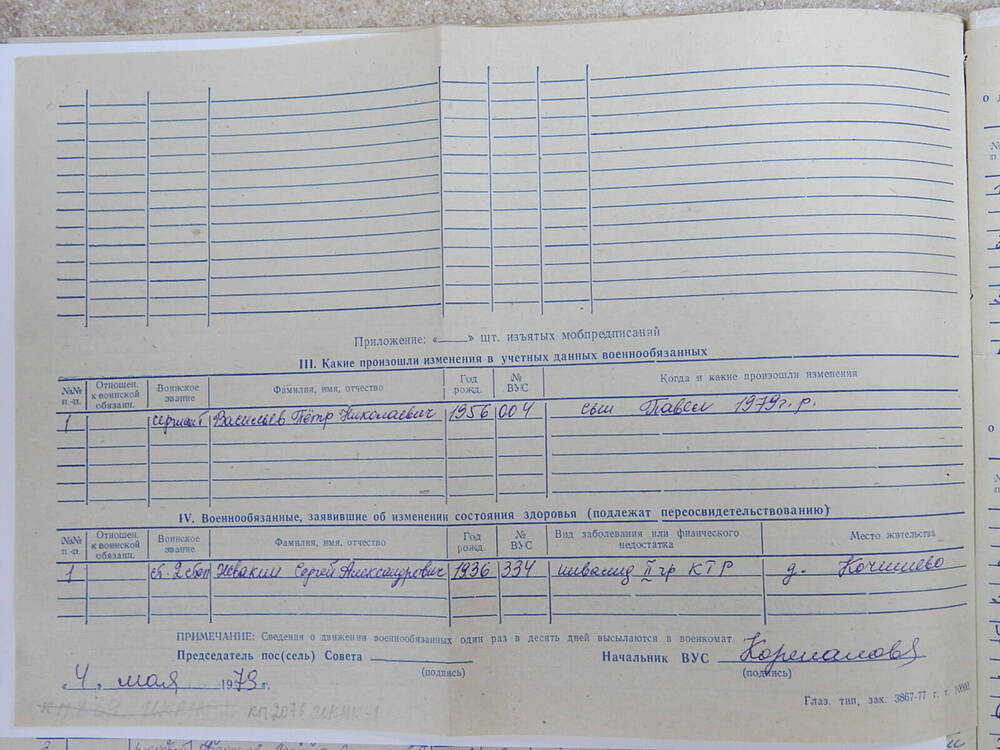 Приложение: «____» шт. изъятых мобпредписаний
III. Какие произошли изменения в учетных данных военнообязанных
№№ п.-п. Отношен. к воинской обязанн. Воинское звание Фамилия, имя, отчество Год рожд. № ВУС Когда и какие произошли изменения
1 сержант Васильев Пётр Николаевич 1956 004 сын Павел 1979 г.р.
IV. Военнообязанные, заявившие об изменении состояния здоровья (подлежат переосвидетельствованию)
№№ п.-п. Отношен. к воинской обязанн. Воинское звание Фамилия, имя, отчество Год рожд. № ВУС Вид заболевания или физического недостатка Место жительства
1 Сергей Александрович 1936 334 инвалид II гр д. Кочишево
ПРИМЕЧАНИЕ: Сведения о движения военнообязанных один раз в десять дней высылаются в военкомат
Председатель пос(сель) Совета ________ Начальник ВУС Корепанова
(подпись) (подпись)
„4. мая 1979 г.
Глаз. тип, зак. 3867-77 г. т. 10000
кп 2076